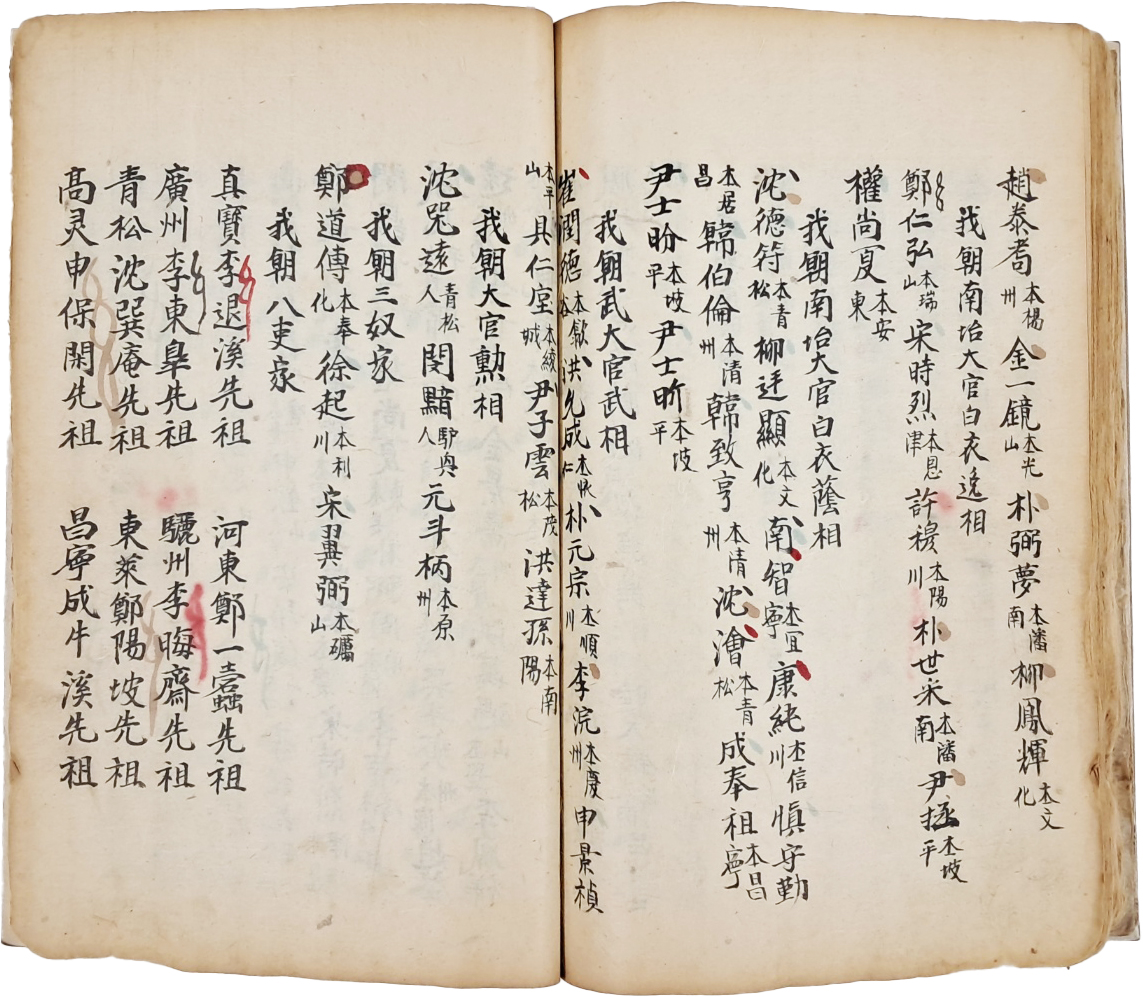 趙泰耉本楊州 金一鏡本光山 朴弼夢本潘南 柳鳳輝本文化
我朝南坮大官白衣逸相
鄭仁弘本瑞山 宋時烈本恩津 許穆本陽川 朴世采本潘南 尹拯本坡平
權尙夏本安東
我朝南坮大官白衣蔭相
沈德符本青松 柳廷顯本文化 南智本宜寧 康純本信川 愼守勤
本居昌 韓伯倫本清州 韓致亨本清州 沈澮本青松 成奉祖本昌寧
尹士昐本坡平 尹士昕本坡平
我朝武大官武相
崔潤德本歙谷 洪允成本懷仁 朴元宗本順川 李浣本慶州 申景禎
本平山 具仁垕本綾城 尹子雲本茂松 洪達孫本南陽
我朝大官勳相
沈器遠青松人 閔黯驪興人 元斗柄本原州
我朝三奴家
鄭道傳本奉化 徐起本利川 宋翼弼本礪山
我朝八吏家
真寶李退溪先祖 河東鄭一蠹先祖
廣州李東皐先祖 驪州李晦齋先祖
青松沈巽庵先祖 東萊鄭陽坡先祖
高灵申保閑先祖 昌寧成牛溪先祖